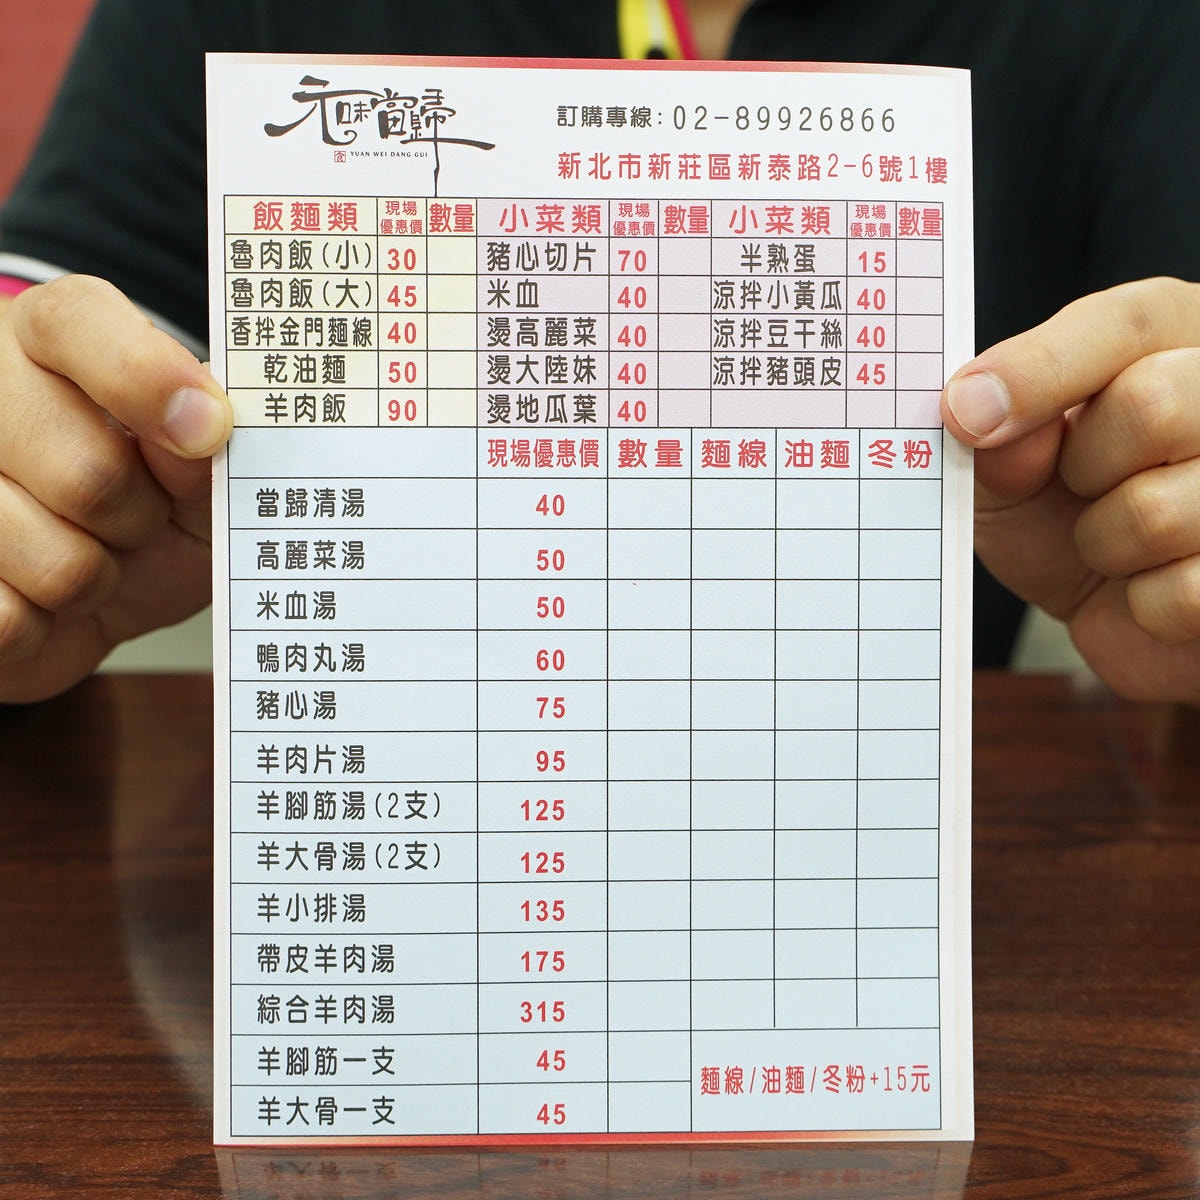 元味當歸
食 YUAN WEI DANG GUI
訂購專線：02-89926866
新北市新莊區新泰路2-6號1樓
飯麵類 現場優惠價 數量 小菜類 現場優惠價 數量 小菜類 現場優惠價 數量
魯肉飯(小) 30 豬心切片 70 半熟蛋 15
魯肉飯(大) 45 米血 40 涼拌小黃瓜 40
香拌金門麵線 40 燙高麗菜 40 涼拌豆干絲 40
乾油麵 50 燙大陸妹 40 涼拌豬頭皮 45
羊肉飯 90 燙地瓜葉 40
現場優惠價 數量 麵線 油麵 冬粉
當歸清湯 40
高麗菜湯 50
米血湯 50
鴨肉丸湯 60
豬心湯 75
羊肉片湯 95
羊腳筋湯(2支) 125
羊大骨湯(2支) 125
羊小排湯 135
帶皮羊肉湯 175
綜合羊肉湯 315
羊腳筋一支 45
羊大骨一支 45
麵線/油麵/冬粉+15元